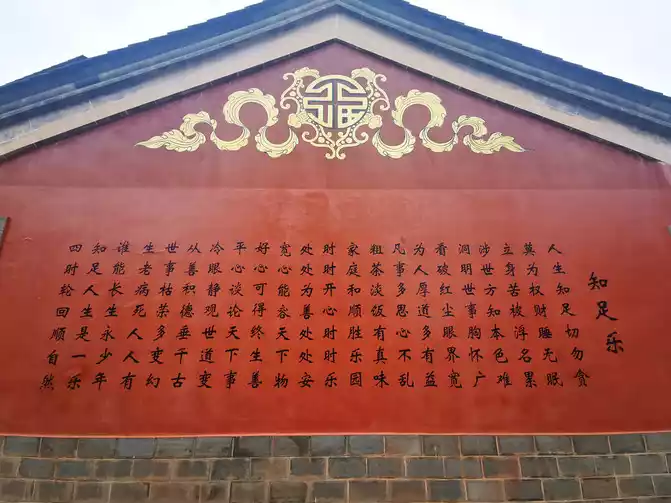 知足乐
人生知足切勿贪
莫为权财睡无眠
立身苦被浮名累
涉世方知本色难
洞明世事胸怀广
看破红尘眼界宽
为人厚道多有益
凡事多思心不乱
粗茶淡饭有真味
家庭和顺胜乐园
时时开心时时乐
处处为善处处安
宽心能容天下物
好心可得终生善
平心谈论天下事
冷眼静观世道变
从善积德垂千古
世事枯荣多变幻
生老病死人人有
谁能长生永少年
知足人生是一乐
四时轮回顺自然